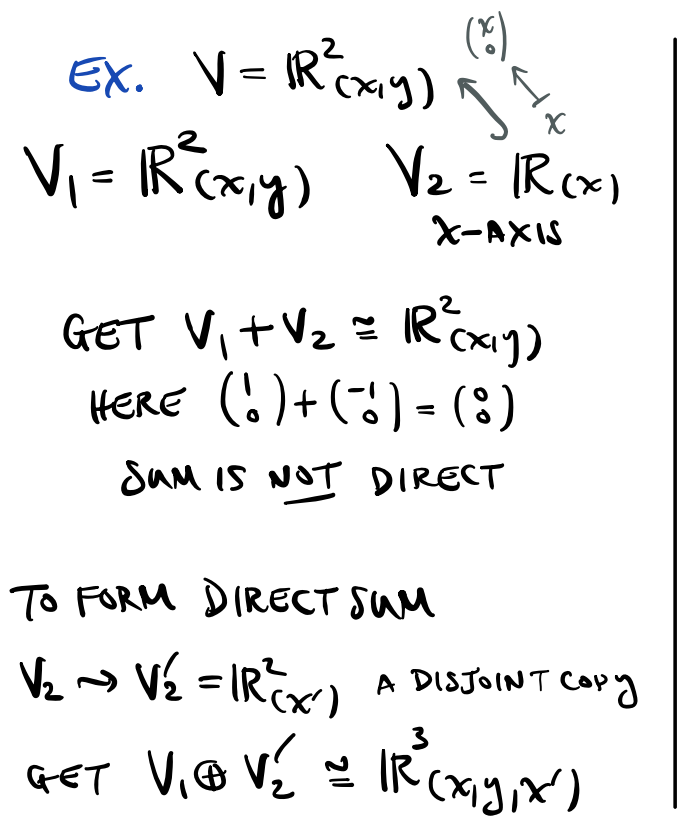 EX. V = ℝ²(x,y) (x 0)
x
V₁ = ℝ²(x,y) V₂ = ℝ(x)
X-AXIS
GET V₁ + V₂ ≅ ℝ²(x,y)
HERE (1 0) + (-1 0) = (0 0)
SUM IS NOT DIRECT
TO FORM DIRECT SUM
V₂ ⇝ V₂′ = ℝ²(x′) A DISJOINT COPY
GET V₁ ⊕ V₂′ ≅ ℝ³(x,y,x′)